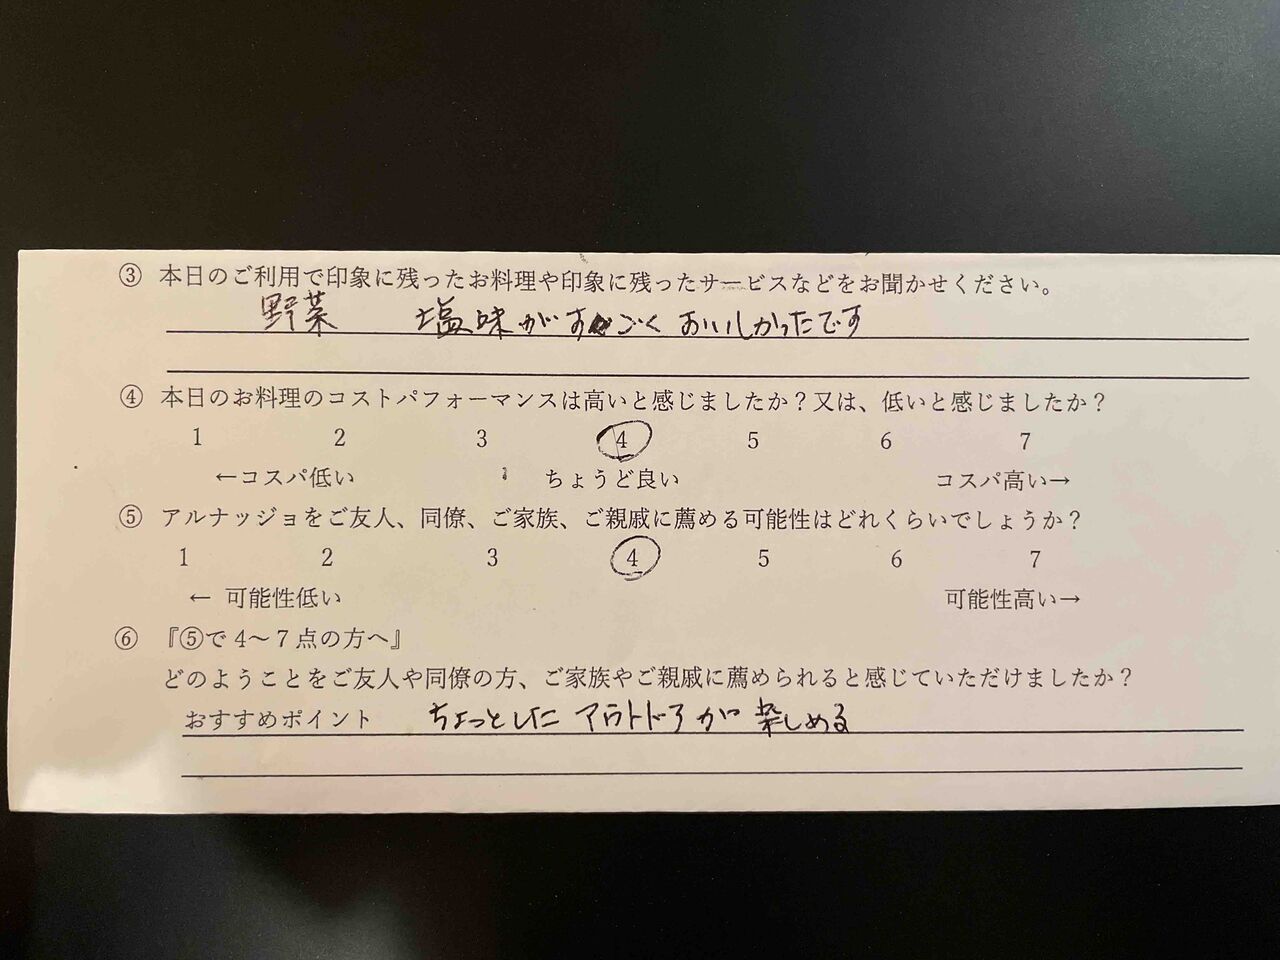 ③ 本日のご利用で印象に残ったお料理や印象に残ったサービスなどをお聞かせください。
野菜 塩味がすごく おいしかったです
④ 本日のお料理のコストパフォーマンスは高いと感じましたか？又は、低いと感じましたか？
1 2 3 4 5 6 7
←コスパ低い ちょうど良い コスパ高い→
⑤ アルナッジョをご友人、同僚、ご家族、ご親戚に薦める可能性はどれくらいでしょうか？
1 2 3 4 5 6 7
← 可能性低い 可能性高い→
⑥ 『⑤で 4～7 点の方へ』
どのようことをご友人や同僚の方、ご家族やご親戚に薦められると感じていただけましたか？
おすすめポイント ちょっとした アウトドアが 楽しめる